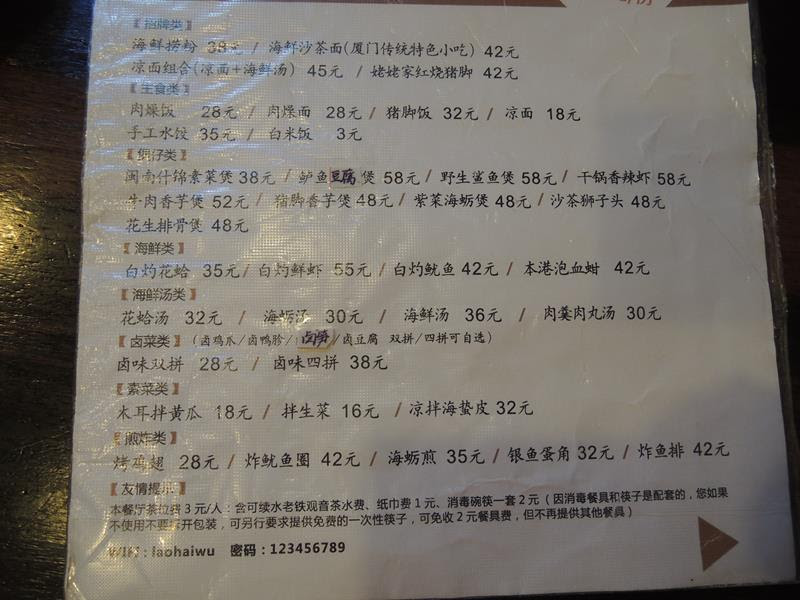 【招牌类】
海鲜捞粉 38元 / 海鲜沙茶面(厦门传统特色小吃) 42元
凉面组合(凉面+海鲜汤) 45元 / 姥姥家红烧猪脚 42元
【主食类】
肉燥饭 28元 / 肉燥面 28元 / 猪脚饭 32元 / 凉面 18元
手工水饺 35元 / 白米饭 3元
【煲仔类】
闽南什锦素菜煲 38元 / 鲈鱼豆腐煲 58元 / 野生鲨鱼煲 58元 / 干锅香辣虾 58元
牛肉香芋煲 52元 / 猪脚香芋煲 48元 / 紫菜海蛎煲 48元 / 沙茶狮子头 48元
花生排骨煲 48元
【海鲜类】
白灼花蛤 35元 / 白灼鲜虾 55元 / 白灼鱿鱼 42元 / 本港泡血蚶 42元
【海鲜汤类】
花蛤汤 32元 / 海蛎汤 30元 / 海鲜汤 36元 / 肉羹肉丸汤 30元
【卤菜类】(卤鸡爪/卤鸭胗/卤笋/卤豆腐 双拼/四拼可自选)
卤味双拼 28元 / 卤味四拼 38元
【素菜类】
木耳拌黄瓜 18元 / 拌生菜 16元 / 凉拌海蜇皮 32元
【煎炸类】
烤鸡翅 28元 / 炸鱿鱼圈 42元 / 海蛎煎 35元 / 银鱼蛋角 32元 / 炸鱼排 42元
【友情提示】
本餐厅茶位费3元/人：含可续水老铁观音茶水费、纸巾费1元、消毒碗筷一套2元（因消毒餐具和筷子是配套的，您如果
不使用不要拆开包装，可另行要求提供免费的一次性筷子，可免收2元餐具费，但不再提供其他餐具）
WIFI：laohaiwu 密码：123456789